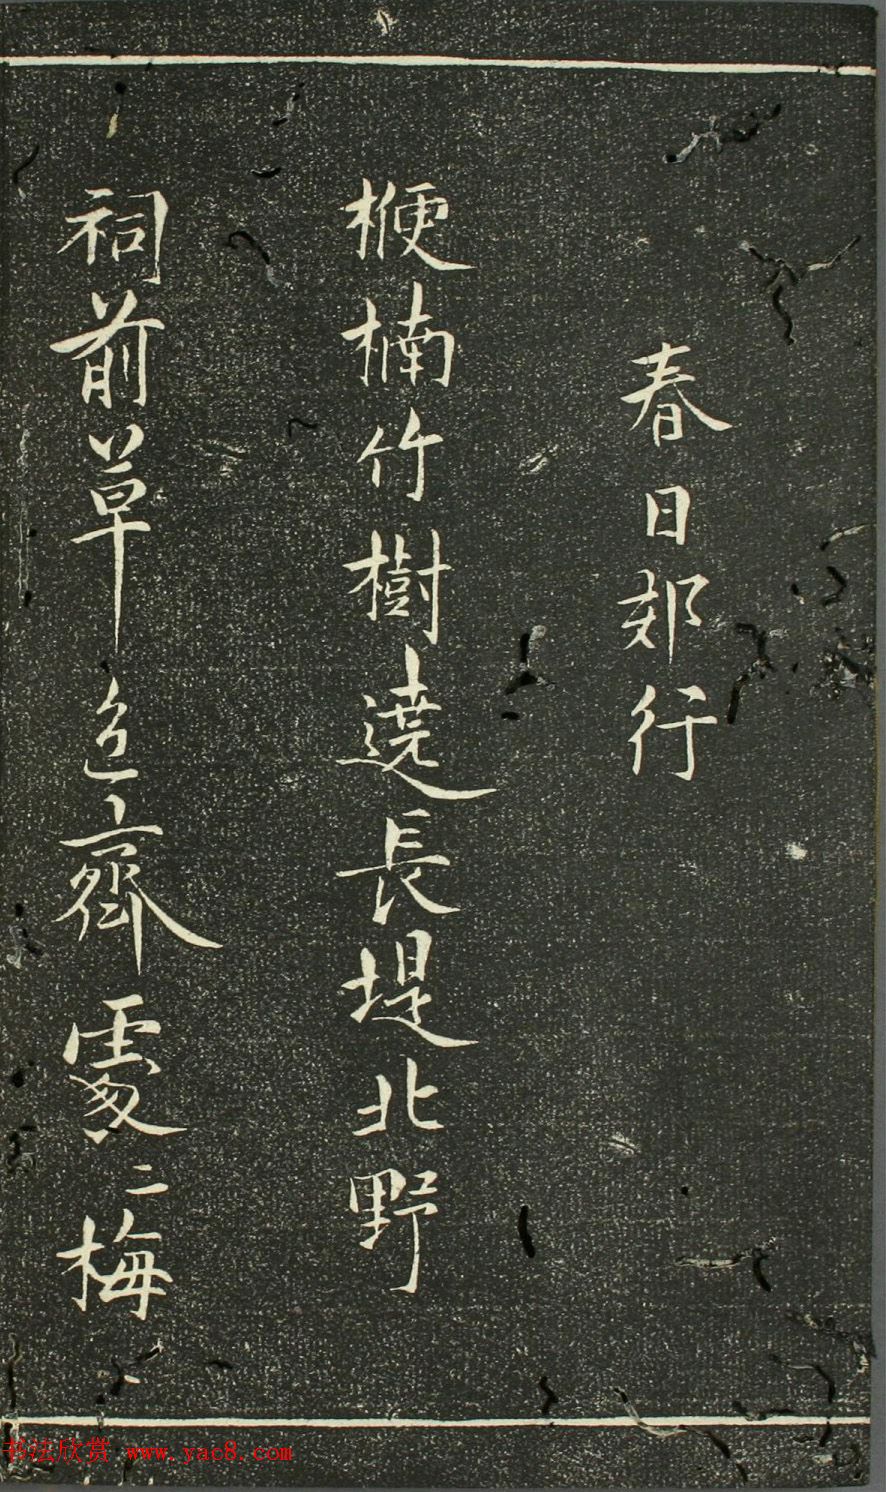 春日郊行
楩楠竹樹遶長堤北野
祠前草色齊處々梅
书法欣赏 www.yac8.com